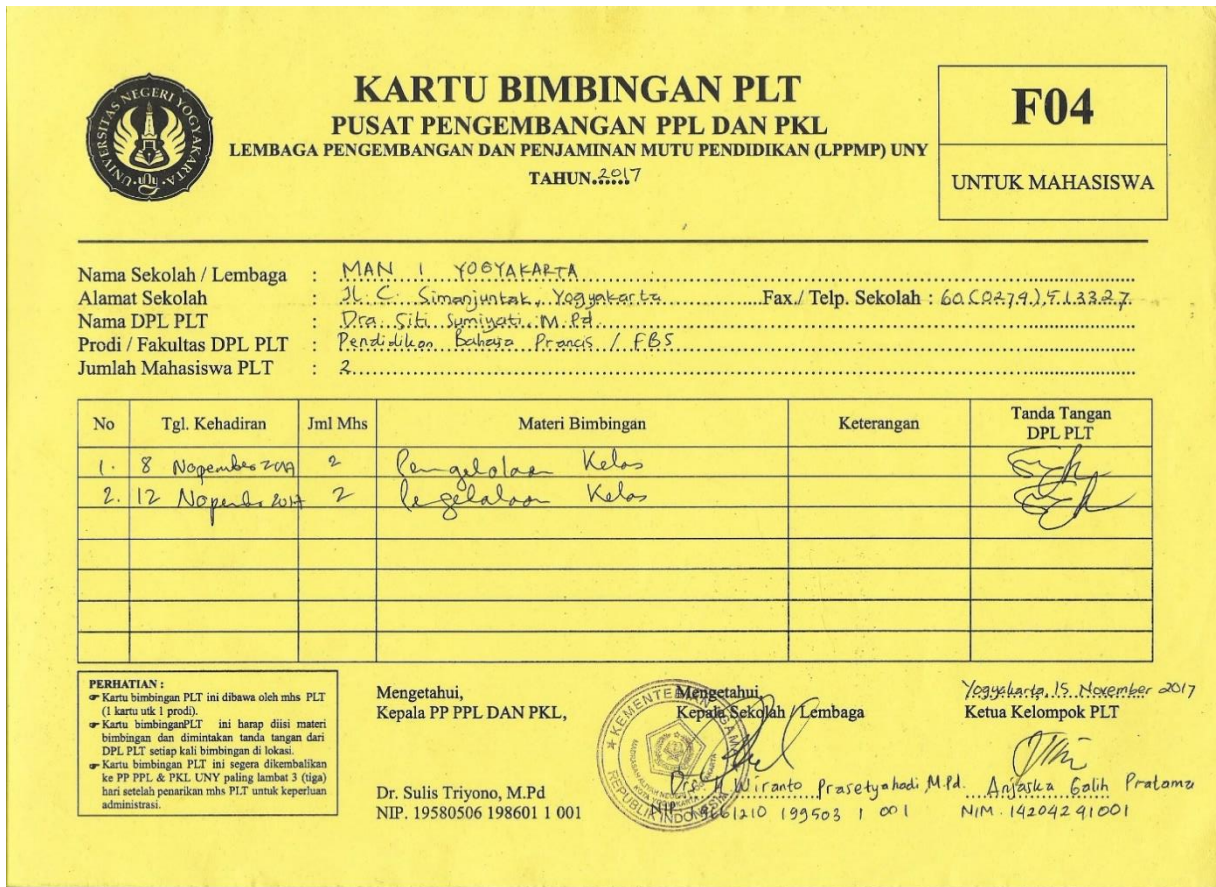 UNIVERSITAS NEGERI YOGYAKARTA
UNY
KARTU BIMBINGAN PLT
PUSAT PENGEMBANGAN PPL DAN PKL
LEMBAGA PENGEMBANGAN DAN PENJAMINAN MUTU PENDIDIKAN (LPPMP) UNY
TAHUN 2017
F04
UNTUK MAHASISWA
Nama Sekolah / Lembaga : MAN 1 YOGYAKARTA
Alamat Sekolah : Jl. C. Simanjuntak, Yogyakarta Fax./ Telp. Sekolah : 513327
Nama DPL PLT : Dra. Siti Sumiyati, M.Pd
Prodi / Fakultas DPL PLT : Pendidikan Bahasa Prancis / FBS
Jumlah Mahasiswa PLT : 2
No Tgl. Kehadiran Jml Mhs Materi Bimbingan Keterangan Tanda Tangan DPL PLT
1. 8 Nopember 2017 2 Pengelolaan Kelas
2. 12 Nopember 2017 2 Pengelolaan Kelas
PERHATIAN :
Kartu bimbingan PLT ini dibawa oleh mhs PLT
(1 kartu utk 1 prodi).
Kartu bimbinganPLT ini harap diisi materi
bimbingan dan dimintakan tanda tangan dari
DPL PLT setiap kali bimbingan di lokasi.
Kartu bimbingan PLT ini segera dikembalikan
ke PP PPL & PKL UNY paling lambat 3 (tiga)
hari setelah penarikan mhs PLT untuk keperluan
administrasi.
Mengetahui,
Kepala PP PPL DAN PKL,
Dr. Sulis Triyono, M.Pd
NIP. 19580506 198601 1 001
Mengetahui,
Kepala Sekolah / Lembaga
KEMENTERIAN AGAMA
REPUBLIK INDONESIA
Drs. H Wiranto Prasetyahadi, M.Pd.
NIP. 19661210 199503 1 001
Yogyakarta, 15 November 2017
Ketua Kelompok PLT
Anjaska Galih Pratama
NIM. 14204291001